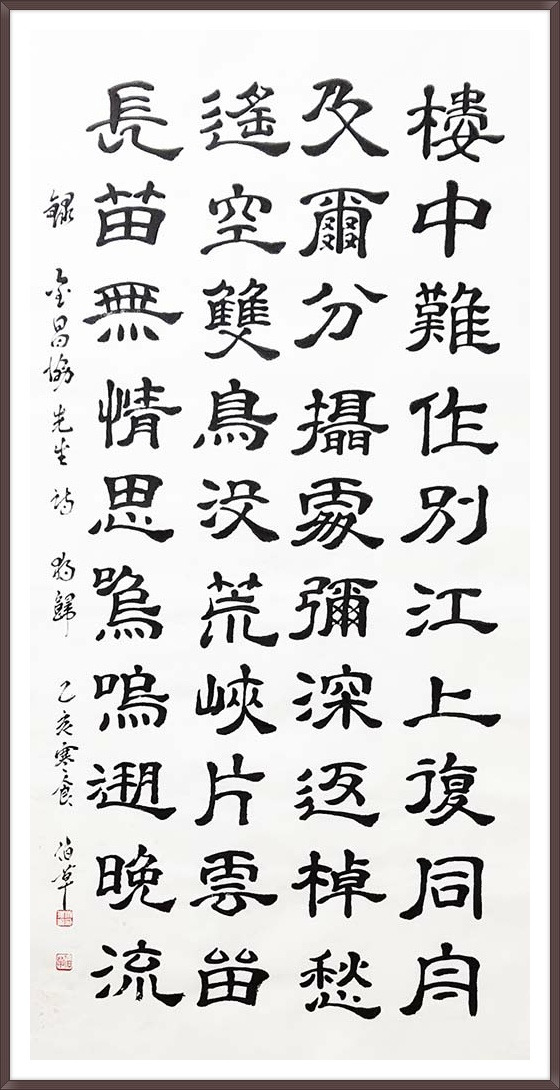 樓中難作別江上復同舟
及爾分攝處彌深返棹愁
遙空雙鳥沒荒峽片雲留
長笛無情思嗚嗚遡晚流
錄 金昌協先生詩 獨歸 乙亥寒食 伯草